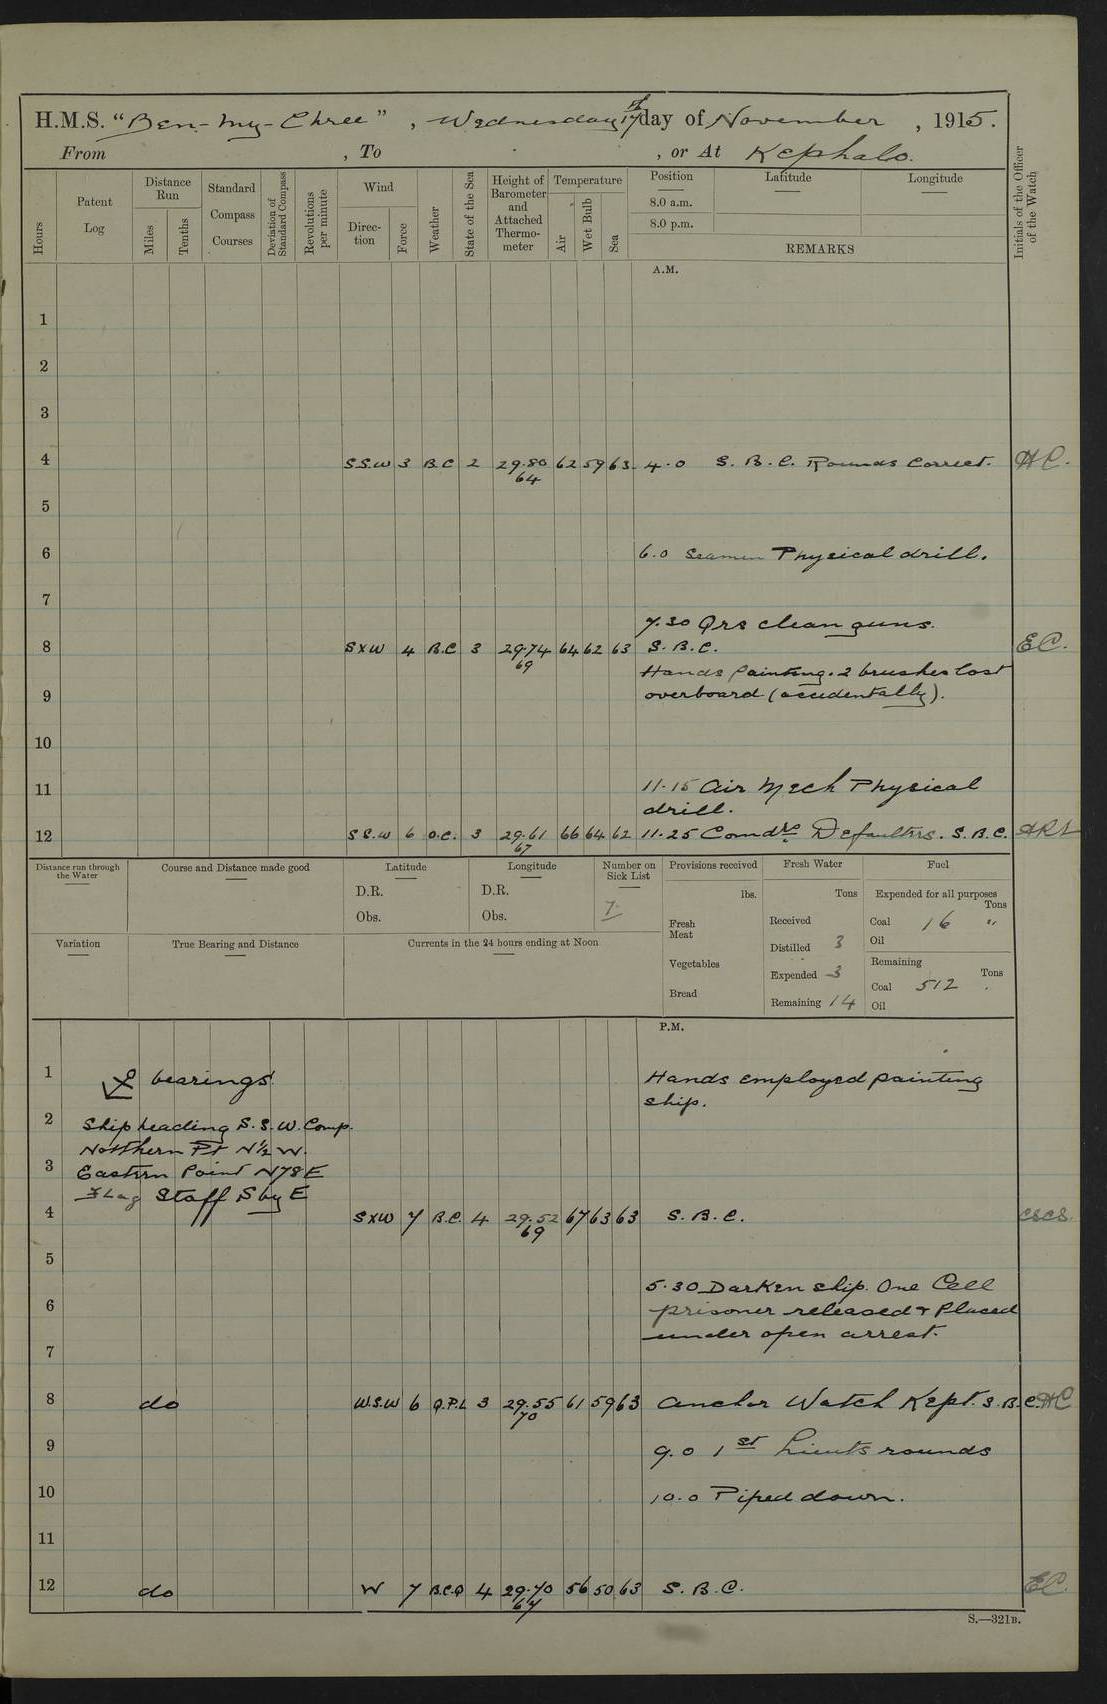 H.M.S. "Ben-my-Chree", Wednesday 17th day of November, 1915.
From , To , or At Kephalo.
Hours
Patent Log
Distance Run
Miles
Tenths
Standard Compass Courses
Deviation of Standard Compass
Revolutions per minute
Wind
Direction
Force
Weather
State of the Sea
Height of Barometer and Attached Thermometer
Temperature
Air
Wet Bulb
Sea
Position
Latitude
Longitude
8.0 a.m.
8.0 p.m.
REMARKS
Initials of the Officer of the Watch
A.M.
1
2
3
4 S.S.W 3 B.C 2 29.80 62 59 63 4.0 S. B. C. Rounds Correct. HC.
64
5
6 6.0 Seamen Physical drill.
7
7.30 Qrs clean guns.
8 SXW 4 B.C 3 29.74 64 62 63 S. B. C. EC.
69
Hands painting. 2 brushes lost
9 overboard (accidentally).
10
11 11.15 Air Mech Physical
drill.
12 S S.W 6 O.C. 3 29.61 66 64 62 11.25 Comdrs Defaulters. S. B. C.
67
Distance run through the Water
Course and Distance made good
Latitude
D.R.
Obs.
Longitude
D.R.
Obs.
Number on Sick List
7
Provisions received
lbs.
Fresh Meat
Vegetables
Bread
Fresh Water
Tons
Received
Distilled 3
Expended 3
Remaining 14
Fuel
Expended for all purposes
Tons
Coal 16 "
Oil
Remaining
Tons
Coal 512 .
Oil
Variation
True Bearing and Distance
Currents in the 24 hours ending at Noon
P.M.
1 bearings Hands employed painting
ship.
2 Ship heading S.S.W. Comp.
Northern Pt N½W.
3 Eastern Point N78E
Flag Staff S by E
4 SXW 7 B.C. 4 29.52 67 63 63 S. B. C. CSCS.
69
5
5.30 Darken ship. One Cell
6 prisoner released & Placed
under open arrest.
7
8 do W.S.W 6 Q.P.L 3 29.55 61 59 63 Anchor Watch Kept. S. B. C. HC
70
9 9.0 1st Lieuts rounds
10 10.0 Piped down.
11
12 do W 7 B.C.Q 4 29.70 56 50 63 S. B. C. EC.
67
S.—321B.